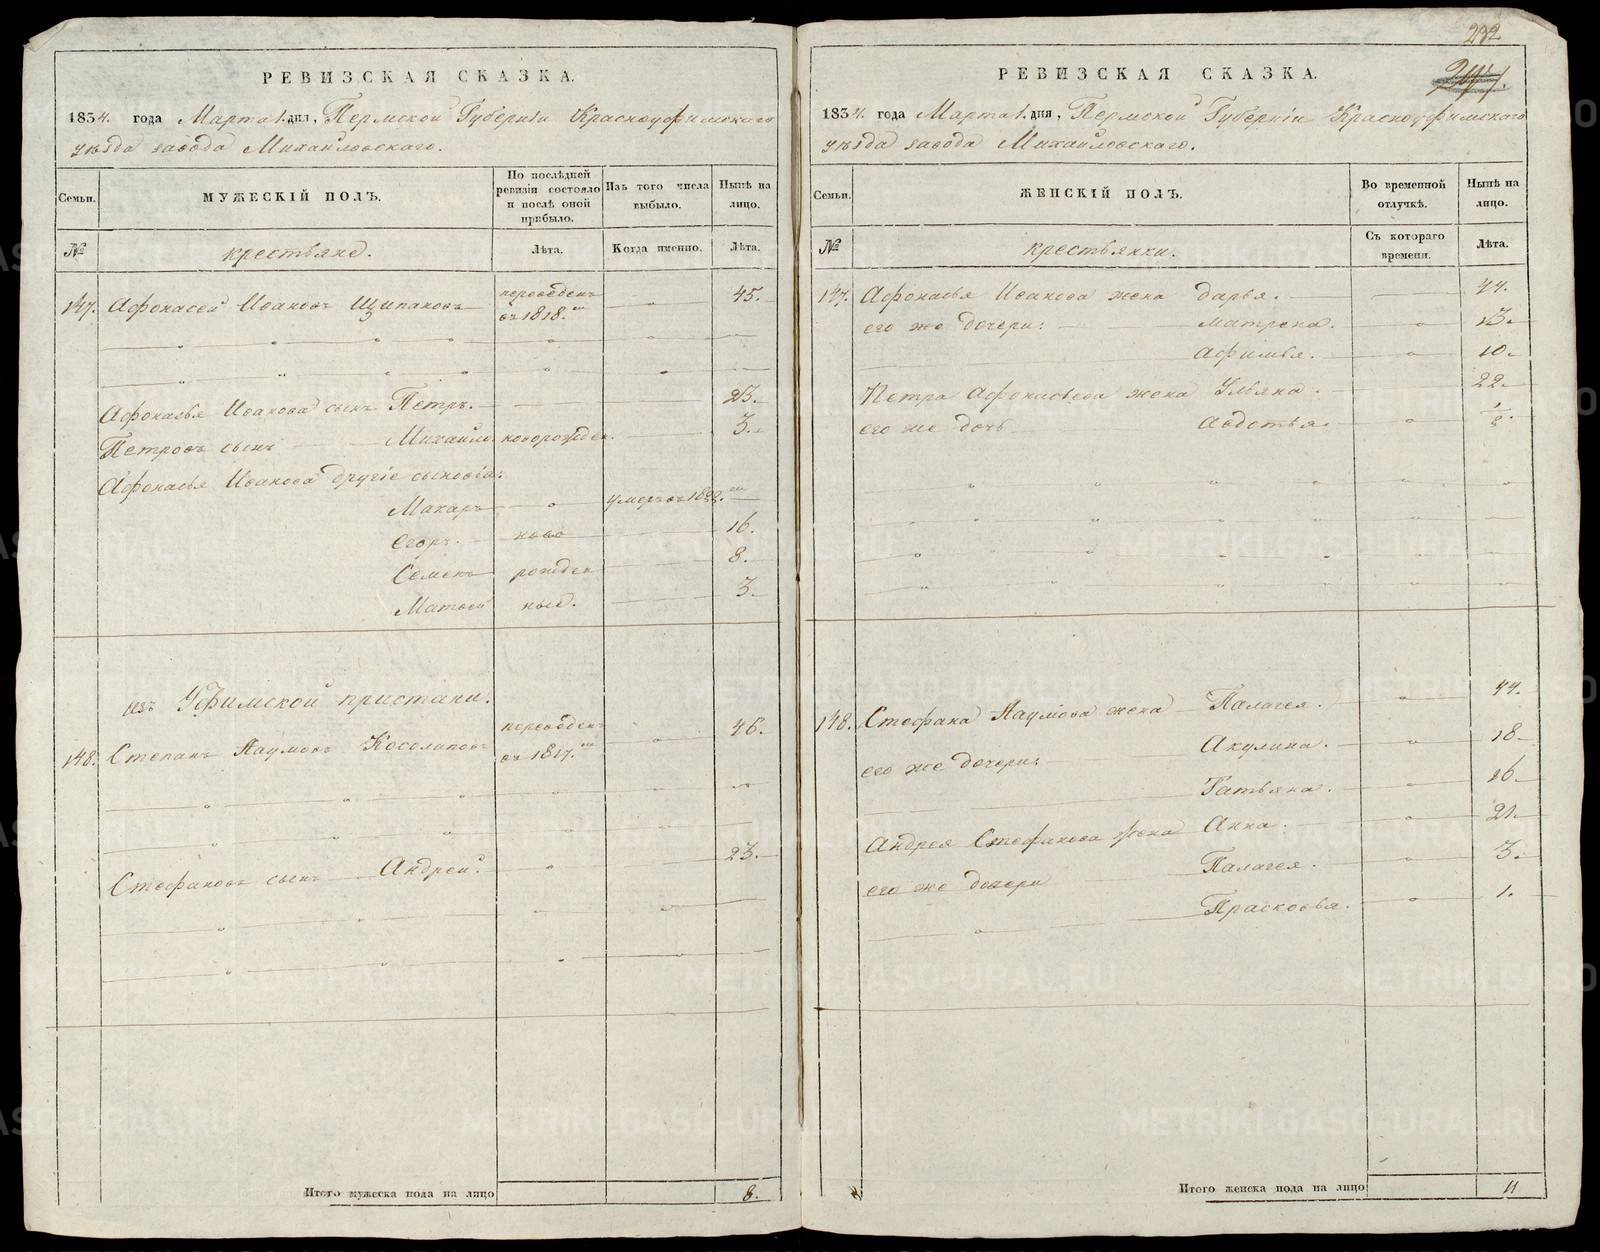 232
РЕВИЗСКАЯ СКАЗКА.
1834. года Марта 1. дня, Пермской Губернiи Красноуфимскаго
уѣзда завода Михайловскаго.
Семьи.
МУЖЕСКIЙ ПОЛЪ.
По послѣдней ревизiи состояло и послѣ оной прибыло.
Изъ того числа выбыло.
Нынѣ на лицо.
№
крестьяне.
Лѣта.
Когда именно.
Лѣта.
147. Афонасей Ивановъ Щипановъ переведенъ въ 1818.мъ 45.
Афонасья Иванова сынъ Петръ. 23.
Петровъ сынъ Михайло новорожден. 3.
Афонасья Иванова другiе сыновья:
Макаръ умеръ въ 1822.мъ
Егоръ. ново 16.
Семенъ рожден 8.
Матвей ные. 3.
изъ Уфимской пристани.
148. Степанъ Наумовъ Косолаповъ переведенъ въ 1817.мъ 46.
Стефановъ сынъ Андрей. 23.
Итого мужеска пола на лицо 8.
РЕВИЗСКАЯ СКАЗКА.
1834. года Марта 1. дня, Пермской Губернiи Красноуфимскаго
уѣзда завода Михайловскаго.
Семьи.
ЖЕНСКIЙ ПОЛЪ.
Во временной отлучкѣ.
Нынѣ на лицо.
№
крестьянки.
Съ котораго времени.
Лѣта.
147. Афонасья Иванова жена Дарья. 44.
его же дочери: Матрена. 13.
Афимья. 10.
Петра Афонасьева жена Ульяна. 22.
его же дочь Авдотья.
148. Стефана Наумова жена Палагея. 44.
его же дочери: Акулина. 18.
Татьяна. 16.
Андрея Стефанова жена Анна. 21.
его же дочери Палагея. 3.
Прасковья. 1.
Итого женска пола на лицо 11
METRIKI.GASO-URAL.RU